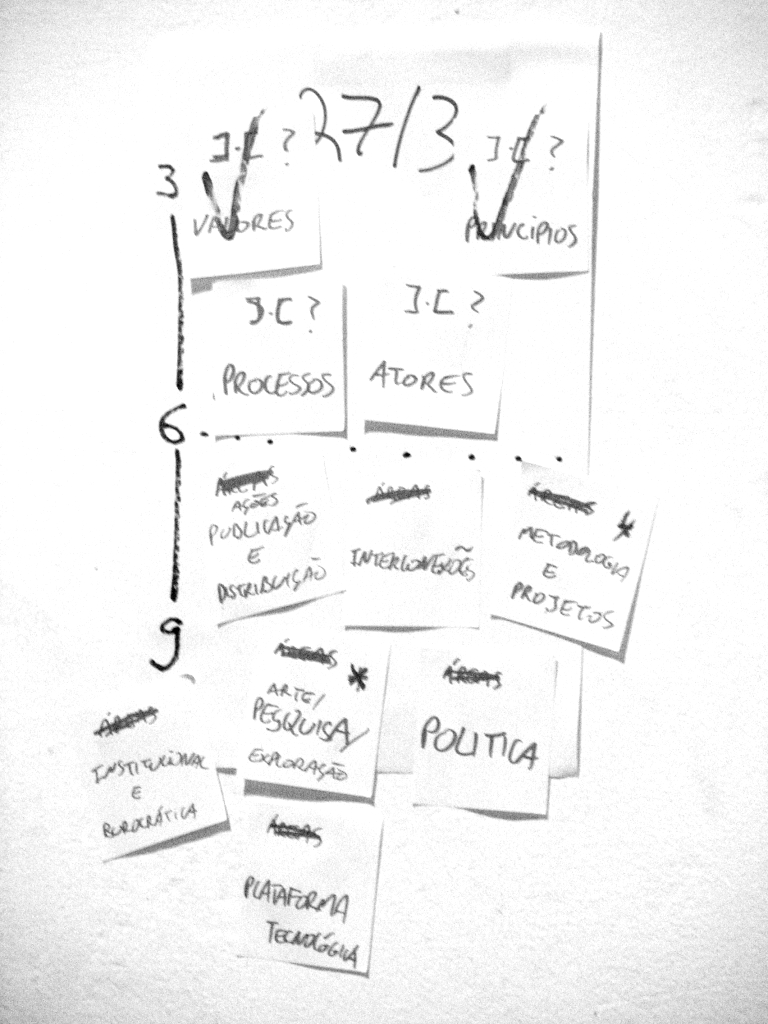 27/3
J.C ?
VALORES
J.C ?
PRINCÍPIOS
3
J.C ?
PROCESSOS
J.C ?
ATORES
6
ÁREAS
AÇÕES
PUBLICAÇÃO
E
DISTRIBUIÇÃO
ÁREAS
INTERCONEXÕES
ÁREAS
METODOLOGIA
E
PROJETOS
9
ÁREAS
ARTE/
PESQUISA/
EXPLORAÇÃO
ÁREAS
POLITICA
ÁREAS
INSTITUCIONAL
E
BUROCRÁTICA
ÁREAS
PLATAFORMA
TECNOLÓGICA